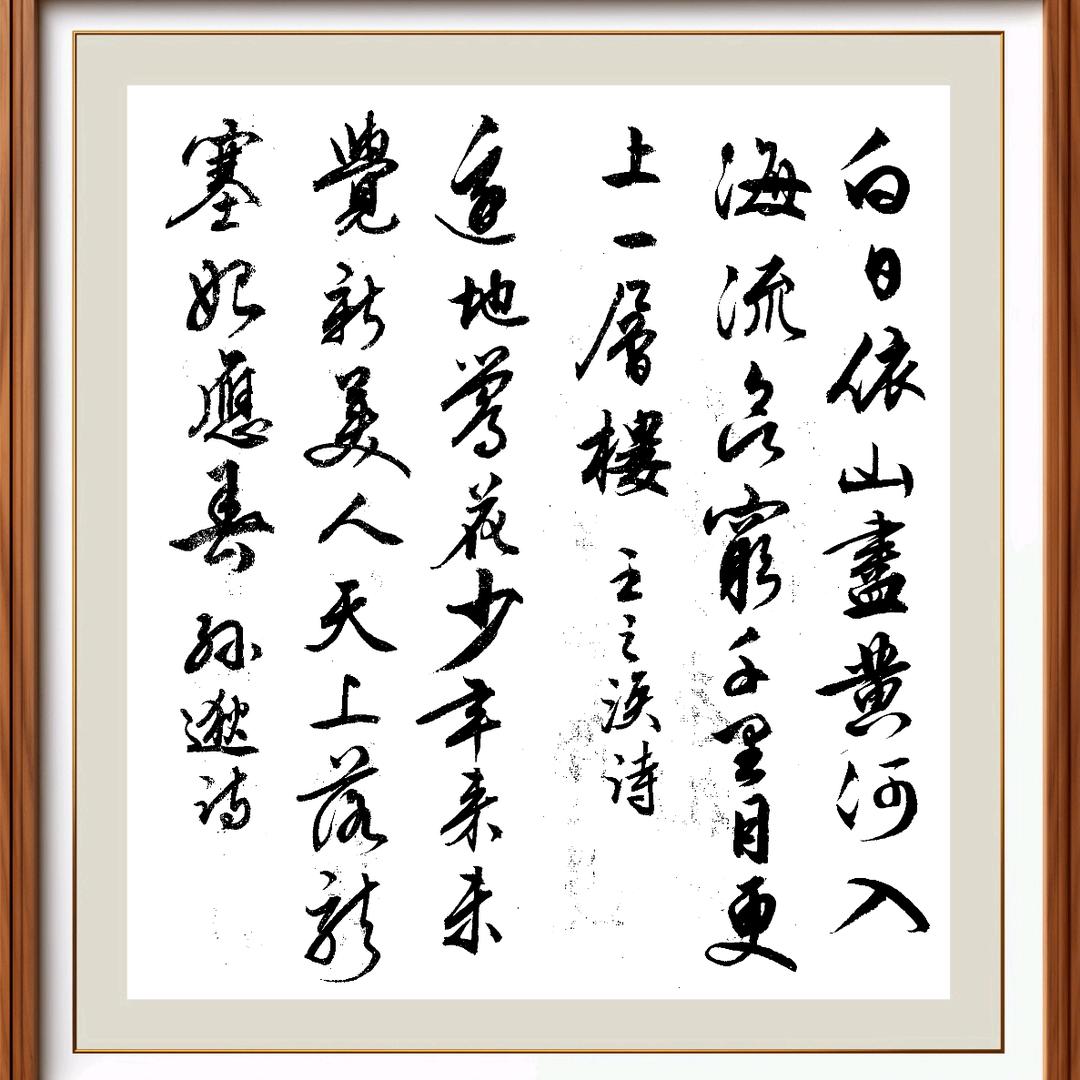 白日依山盡黄河入
海流欲窮千里目更
上一層樓 王之渙詩
邊地鶯花少年来未
覺新美人天上落龍
塞始應春 孫逖詩